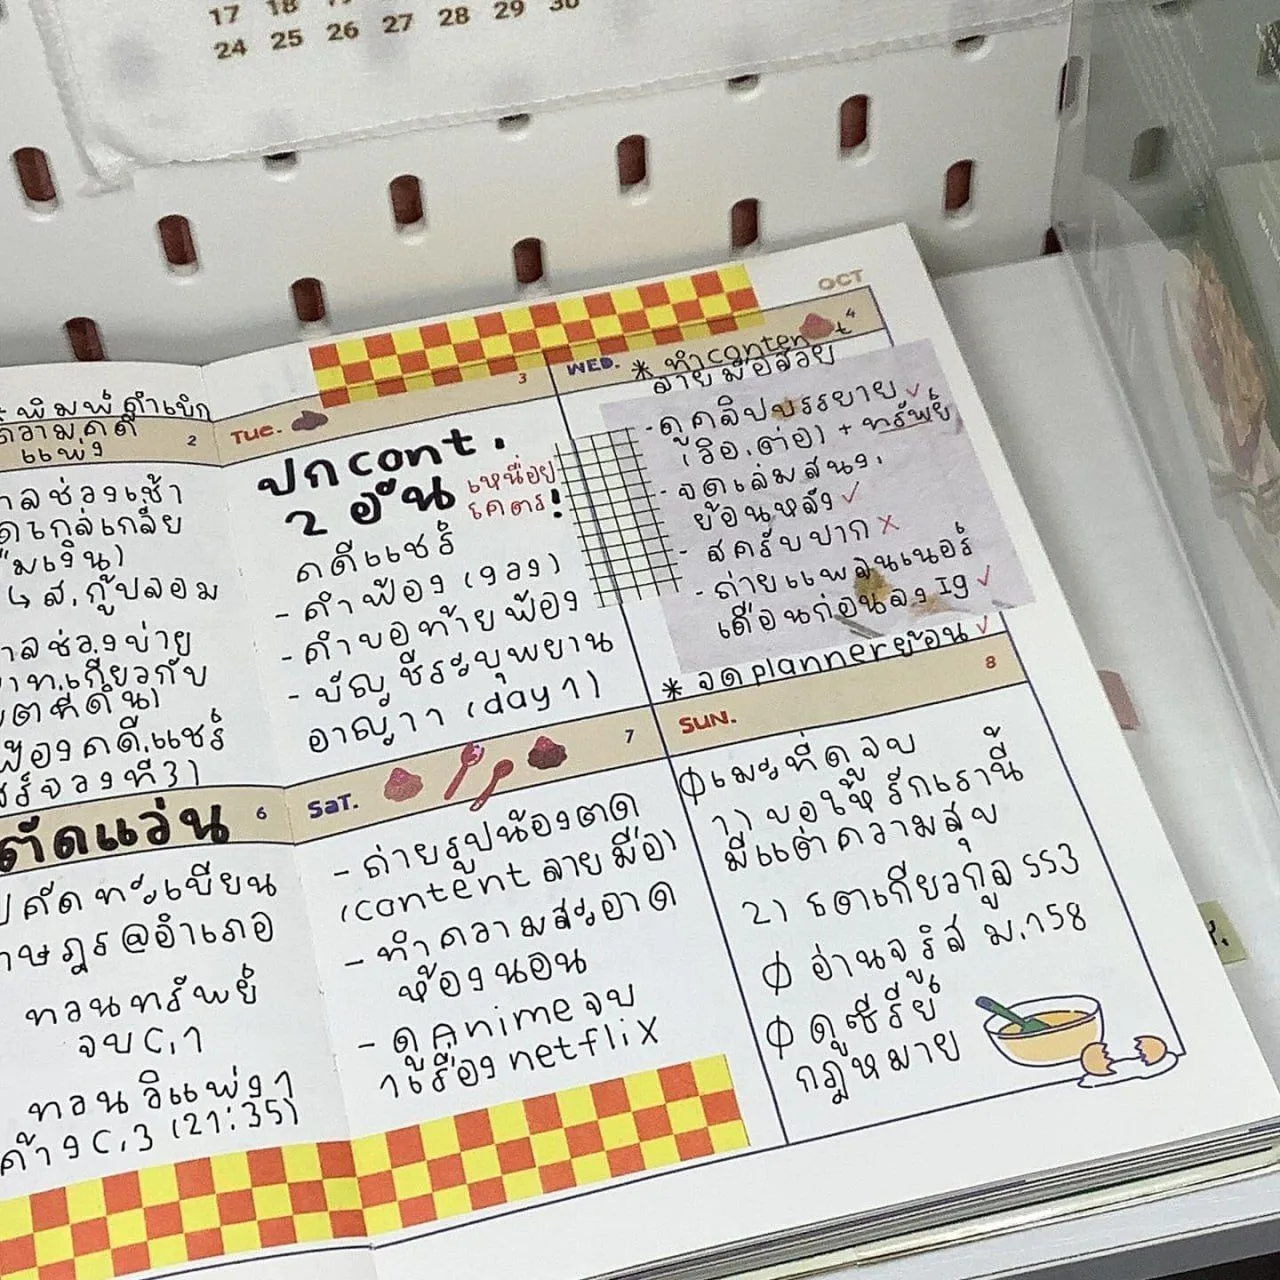 17 18
24 25 26 27 28 29 30
OCT
พิมพ์คำเบิก
ความคดี
แพ่ง
2
ลช่วงเช้า
ไกล่เกลี่ย
ยืมเงิน)
↳ ส.กู้ปลอม
ลช่วงบ่าย
ท.เกี่ยวกับ
ที่ดิน)
ฟ้องคดี.แชร์
แชร์วงที่3)
TUE.
3
ปก cont.
2 อัน
เหนื่อย
โคตร!
คดีแชร์
- คำฟ้อง (วงว)
- คำขอท้ายฟ้อง
- บัญชีระบุพยาน
อาญาฯ (day 1)
WED.
4
* ทำ content
ลายมือสวย
- ดูคลิปบรรยาย ✓
(วิอ.ต่อ) + ทรัพย์
- จดเล่มสนง.
ย้อนหลัง ✓
- สครับปาก ×
- ถ่ายแพลนเนอร์
เดือนก่อนลง Ig ✓
* จด planner ย้อน ✓
6
ตัดแว่น
คัดทะเบียน
ราษฎร@อำเภอ
ทวนทรัพย์
จบ C.1
ทวนวิแพ่ง 1
ค้าง C.3 (21:35)
SAT.
7
- ถ่ายรูปน้องตด
(content ลายมือ)
- ทำความสะอาด
ห้องนอน
- ดู Anime จบ
1 เรื่อง netflix
SUN.
8
φ เมะที่ดูจบ
1) ขอให้รักเรานี้
มีแต่ความสุข
2) โตเกียวกูล ss3
φ อ่านจูริส ม.158
φ ดูซีรีย์
กฎหมาย